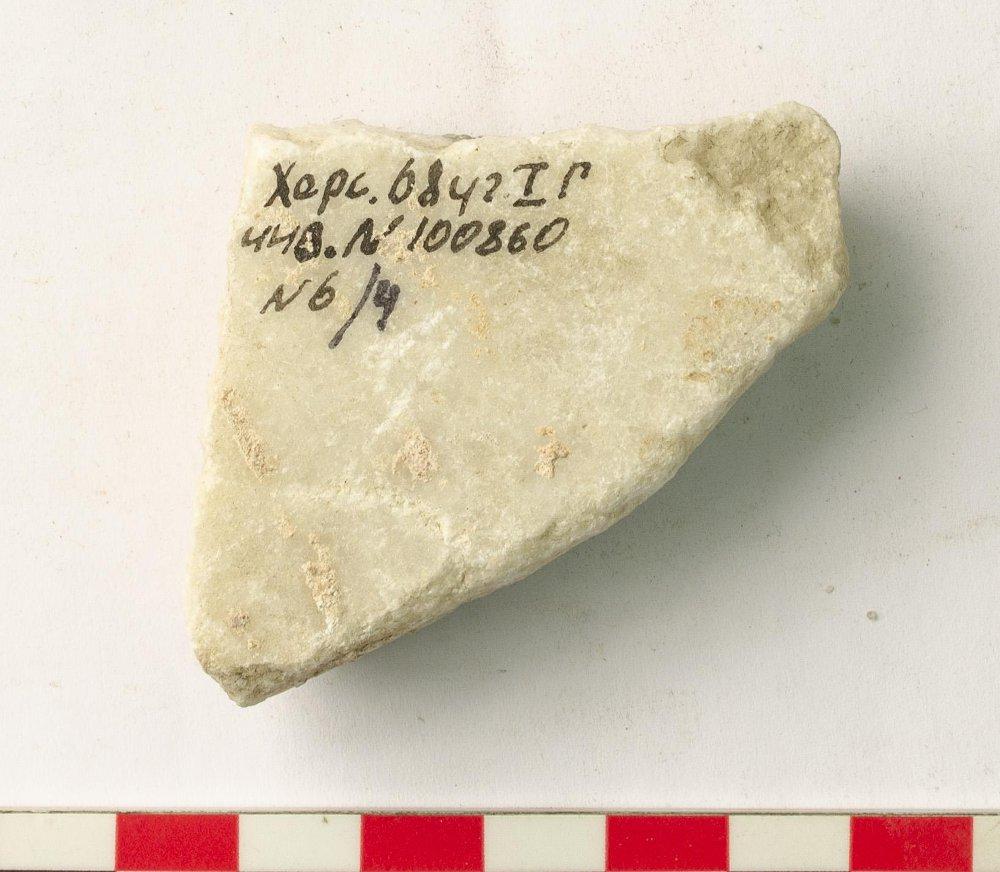 Херс. 68 уг. I Г
инв. № 100860
№ 6/4